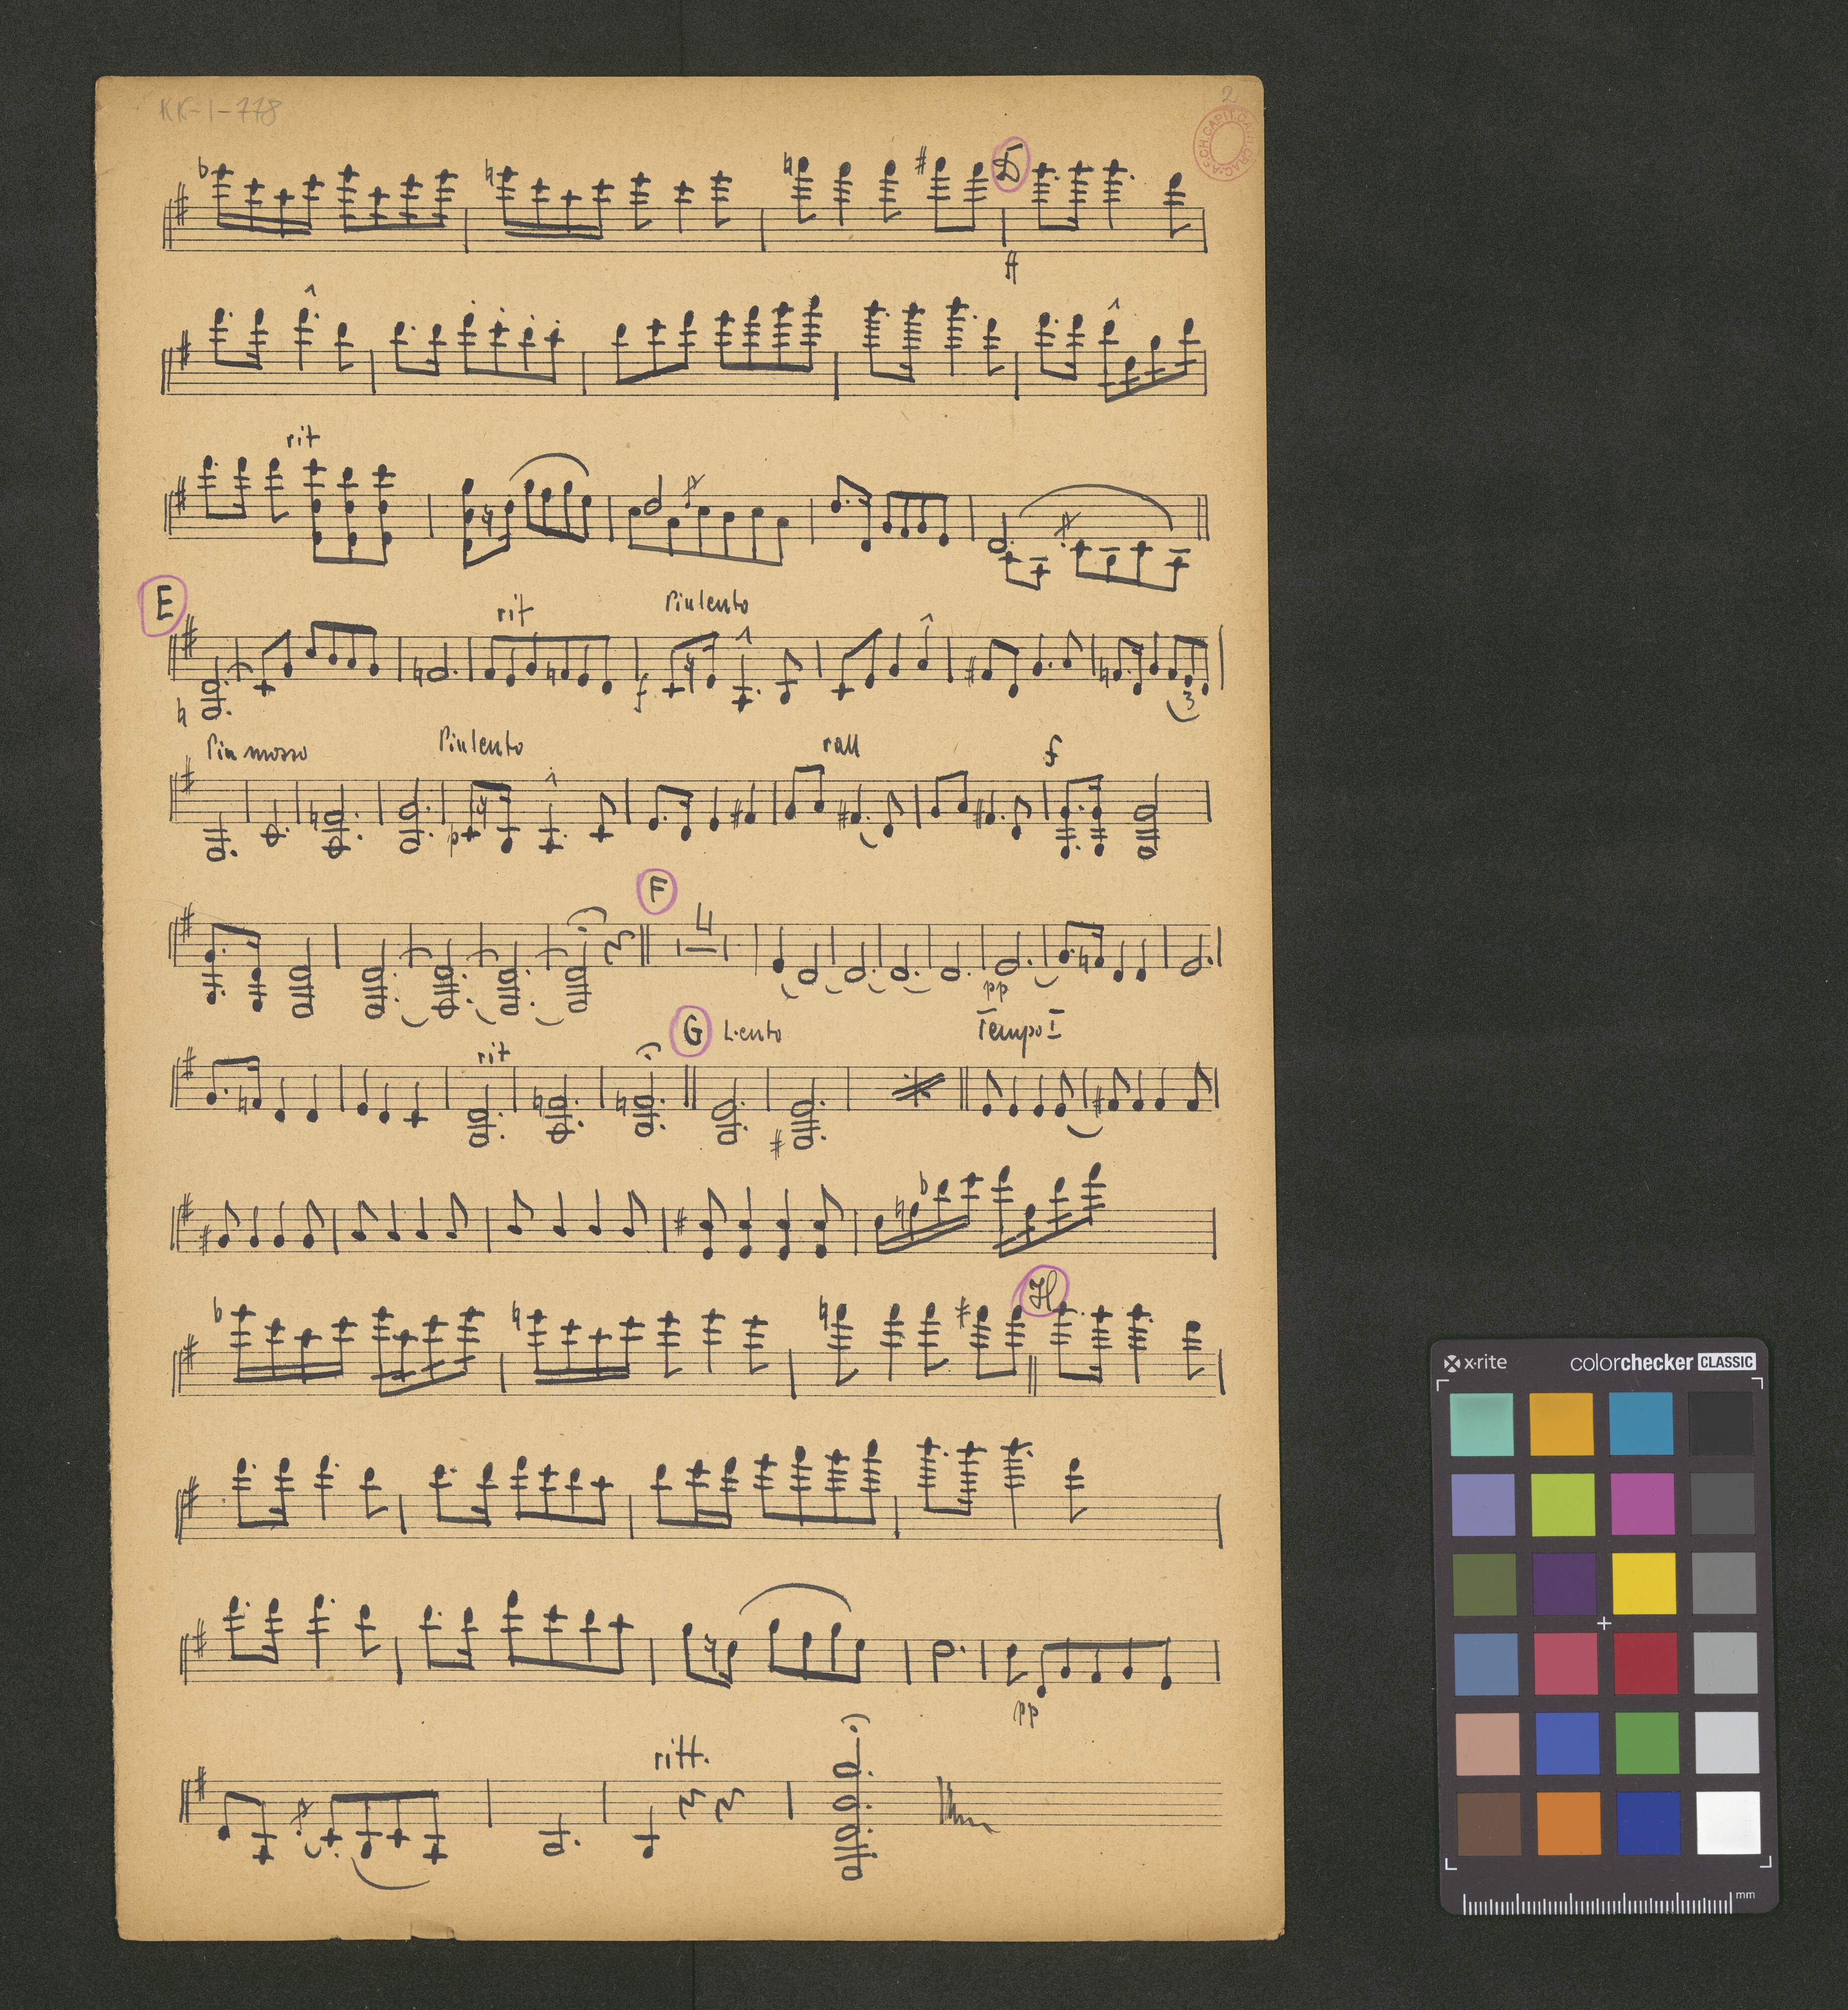 KK-I-778
2
D
ff
rit
E
rit
Piu lento
f
3
Piu mosso
Piu lento
rall
f
p
F
4
pp
G Lento
Tempo I
rit
H
pp
ritt.
x-rite
colorchecker CLASSIC
mm